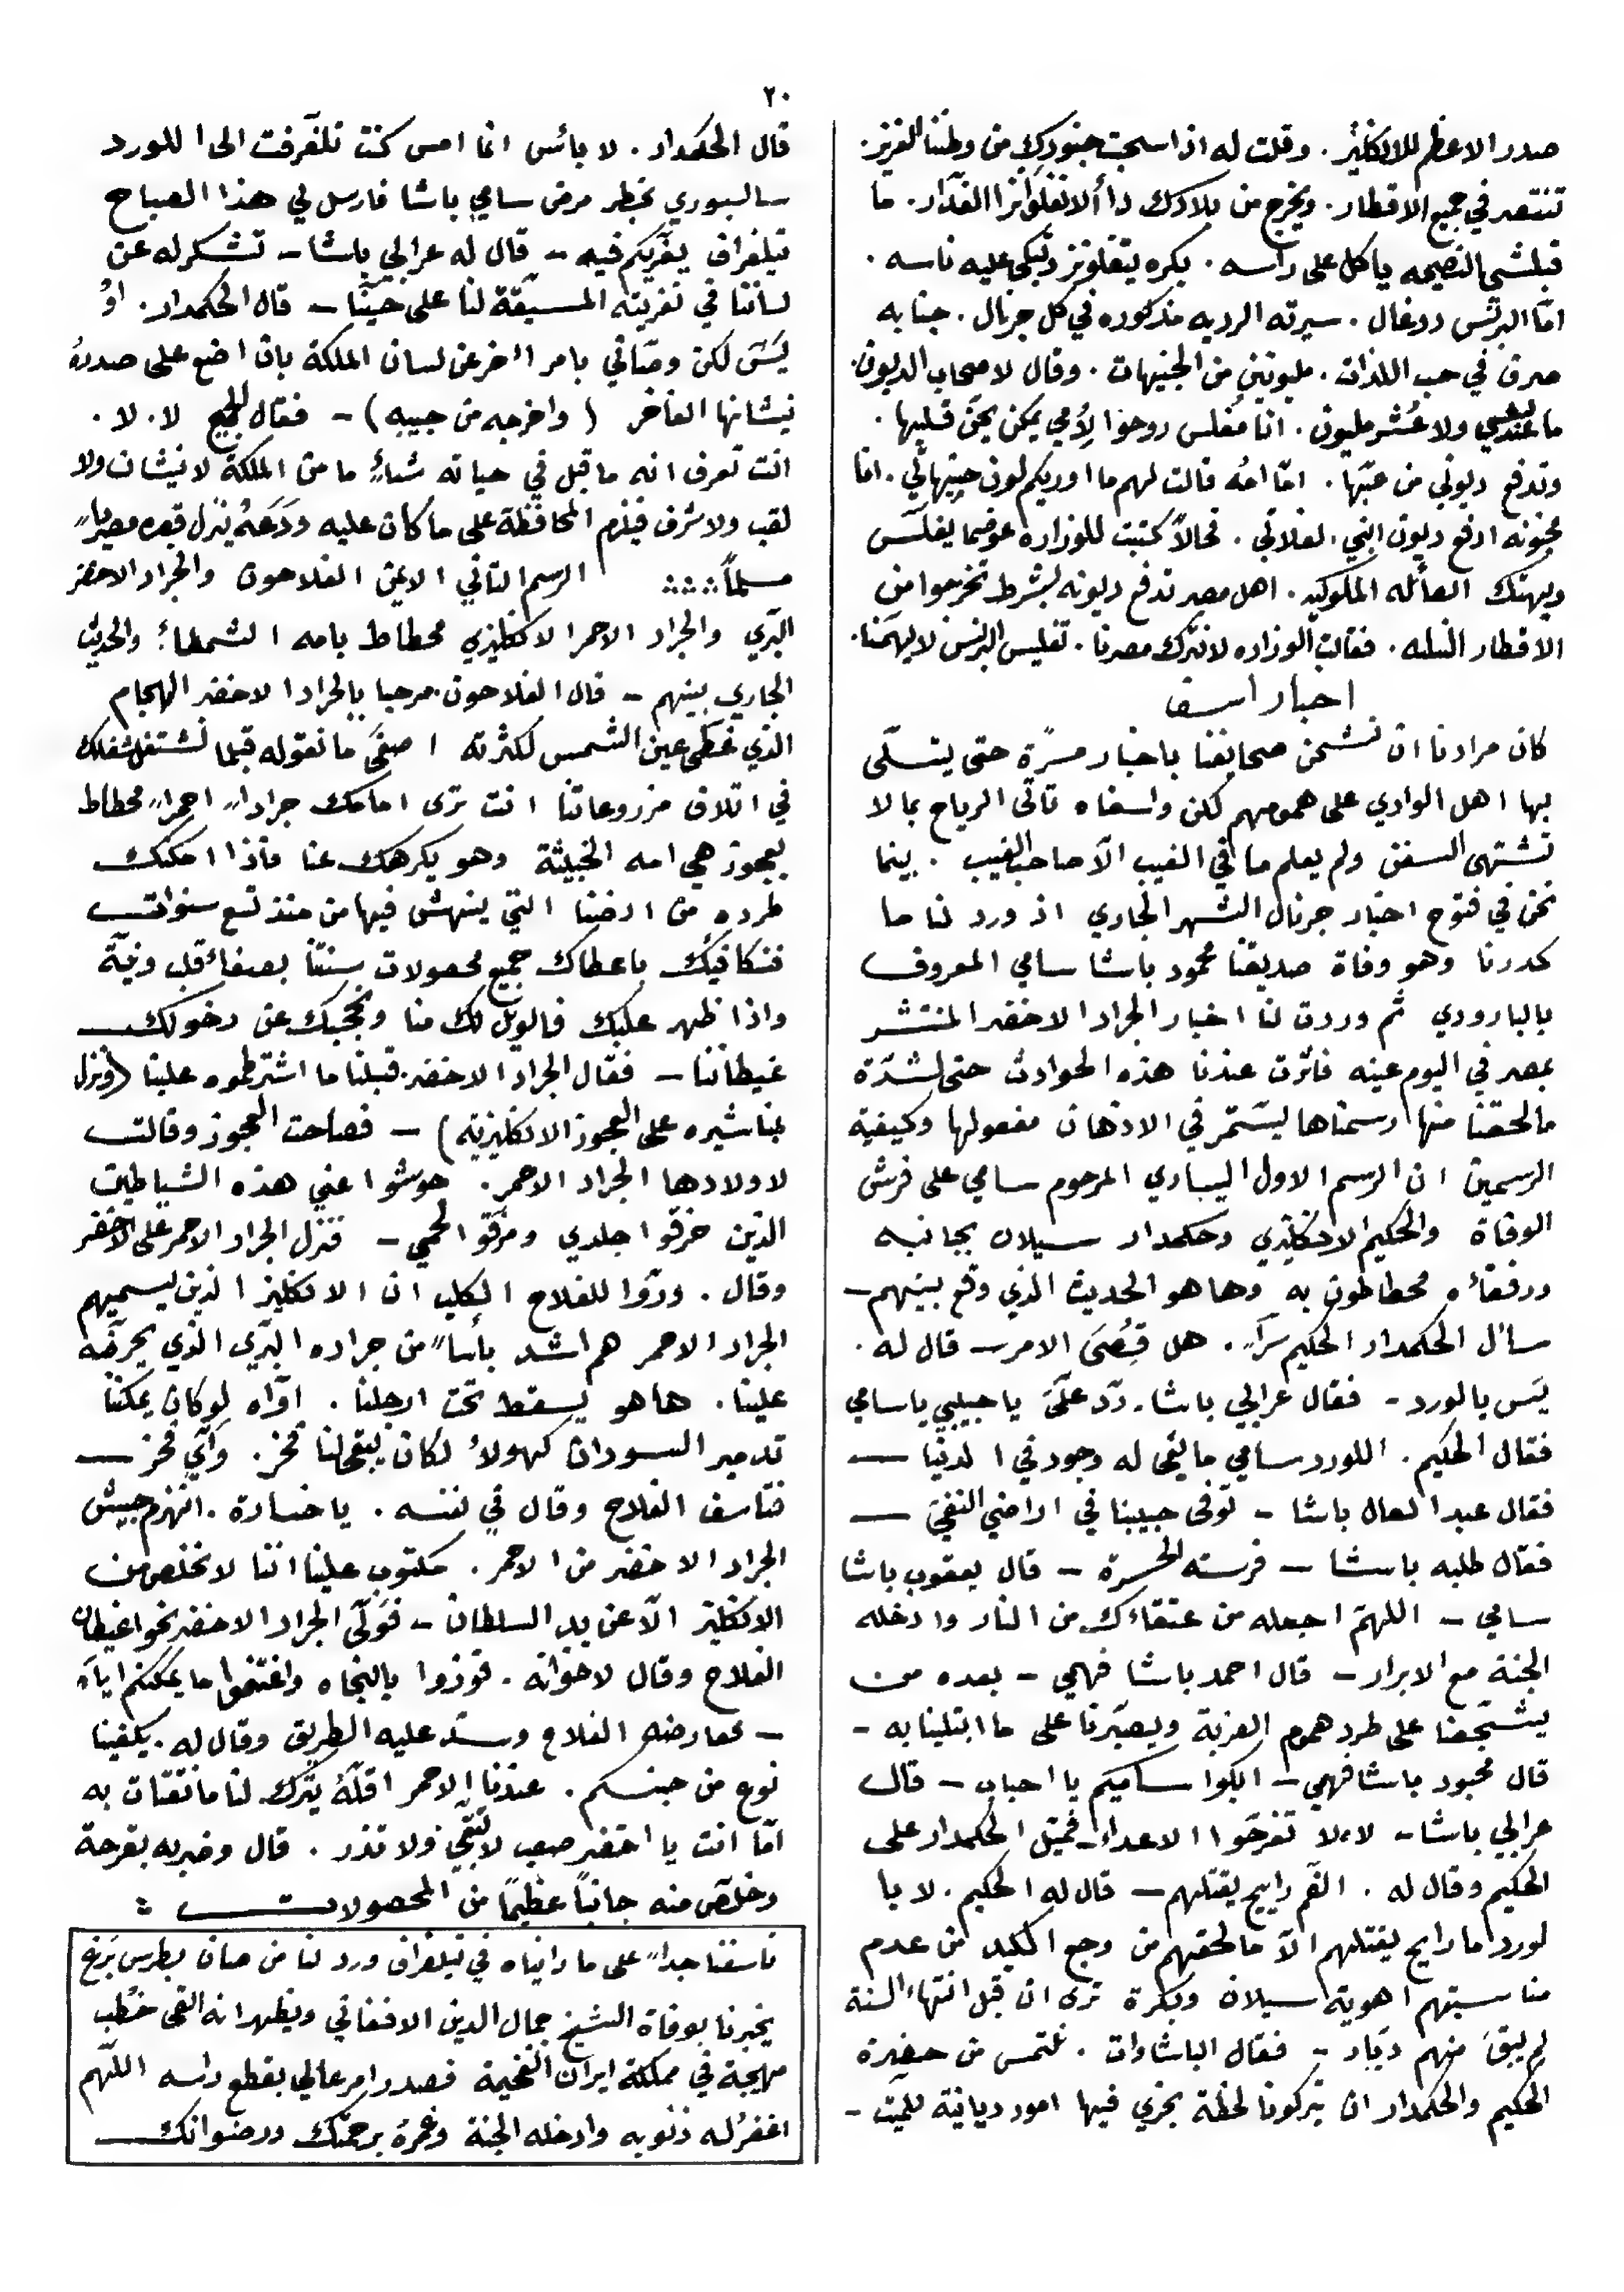 ٢٠
صدر الاعظم للانكليز. وقلت له اذا سحبت جنودك من وطننا العزيز.
تنتصر في جميع الاقطار. ويخرج من بلادك دا الانفلوانزا الغدّار. ما
قبلشي النصيحه ياكل على راسه. بكره يتفلونز وتبكي عليه ناسه.
امّا البرنس دوغال. سيرته الرديه مذكوره في كل جرنال. جنابه
صرف في حب اللذات. مليونين من الجنيهات. وقال لاصحاب الديون.
ما عنديشي ولا عُشر مليون. انا مُفلس روحوا لِأمي يمكن يحَنّ قلبها.
وتدفع ديوني من عبّها. امّا امُه قالت لهم ما اوريكم لون جنيهاتي. انا
مجنونه ادفع ديون ابني الفلاتي. فحالاً كتبت للوزاره عوضما يفلّس
ويهتك العائله الملوكيه. اهل مصر تدفع ديونه بشرط تخرجوا من
الاقطار النيليه. فقالت الوزاره لا نترك مصرنا. تفليس البرنس لا يهمنا.
اخبار اسف
كان مرادنا ان نشحن صحايفنا باخبار مسرّة حتى يتسلّى
بها اهل الوادي على همومهم لكن واسفاه تاتى الرياح بما لا
تشتهى السفن ولم يعلم ما في الغيب الّا صاحب الغيب. بينما
نحن في فتوح اخبار جرنال الشهر الجاري اذ ورد لنا ما
كدرنا وهو وفاة صديقنا محمود باشا سامي المعروف
بالبارودي ثم وردت لنا اخبار الجراد الاخضر المنتشر
بمصر في اليوم عينه فاثرت عندنا هذه الحوادث حتى لشدّة
ما لحقنا منها رسمناها ليستمر في الاذهان مفعولها وكيفية
الرسمين ان الرسم الاول اليساري المرحوم سامي على فرش
الوفاة والحكيم الانكليزي وحكمدار سيلان بجانبه
ورفقاءه محطاطون به وها هو الحديث الذي وقع بينهم –
سال الحكمدار الحكيم سرّاً. هل قُضى الامر – قال له.
يَس يا لورد – فقال عرابي باشا. ردّ علَىّ يا حبيبي يا سامي
فقال الحكيم. اللورد سامي ما بقى له وجود في الدنيا –
فقال عبد العال باشا – توفى حبيبنا في اراضي النفي –
فقال طلبه باشا – فرسته الحسرة – قال يعقوب باشا
سامي – اللهمّ اجعله من عتقاءك من النار وادخله
الجنة مع الابرار – قال احمد باشا فهمي – بعده من
يشجّعنا على طرد هموم الغربة ويصبّرنا على ما ابتلينا به –
قال محمود باشا فهمي – ابكوا ساميكم يا احباب – قال
عرابي باشا – لا. لا تفرحوا الاعداء – فميّل الحكمدار على
الحكيم وقال له. الغَم رايح يقتلهم – قال له الحكيم. لا يا
لورد ما رايح يقتلهم الّا ما لحقهم من وجع الكبد من عدم
مناسبتهم اهوية سيلان وبكرة ترى ان قبل انتهاء السنة
لم يبقَ منهم ديّار – فقال الباشاوات. نلتمس من حضرة
الحكيم والحكمدار ان يتركونا لحظة يجري فيها امور ديانية للميّت –
قال الحكمدار. لا بائس انما امس كنت تلغرفت الى اللورد
سالسبوري بخطر مرض سامي باشا فارسل لي هذا الصباح
تيلغراف يعزّيكم فيه – قال له عرابي باشا – تشكر له عن
لساننا في تعزيته المسبّقة لنا على حيّنا – قال الحكمدار. اوْ
يَسْ لكن وصّاني بامر اخر عن لسان الملكة بان اضع على صدره
نيشانها الفاخر (واخرجه من جيبه) – فقال الجميع لا. لا.
انت تعرف انه ما قبل في حياته شئٍ ما من الملكة لا نيشان ولا
لقب ولا شرف فيلزم المحافظة على ما كان عليه ودَعهُ ينزل قبره مصرياً
مسلماً الرسم الثاني الايمن الفلاحون والجراد الاخضر
البرّي والجراد الاحمر الانكليزي محطاط بامه الشمطاء والحديث
الجاري بينهم – قال الفلاحون. مرحبا بالجراد الاخضر الهجام
الذي غطّى عين الشمس لكثرته اصغَى ما نقوله قبلما تشتغل شغلك
في اتلاف مزروعاتنا انت ترى امامك جراداً احمراً محطاط
بعجوز هي امه الخبيثة وهو يكرهك عنا فأذا امكنك
طرده من ارضنا التي ينهش فيها من منذ تسع سنوات
فنكافيك باعطاك جميع محصولات سنتنا بصفاء قلب ونيّة
واذا ظهر عليك فالويل لك منا ونحجبك عن دخولك
غيطاننا – فقال الجراد الاخضر. قبلنا ما اشترطموه علينا (ونزل
بمناشيره على العجوز الانكليزية) – فصاحت العجوز وقالت
لاولادها الجراد الاحمر. حوشوا عني هذه الشياطين
الذين خرقوا جلدي ومزقوا لحمي – فنزل الجراد الاحمر على الاخضر
وقال. ورّوا للفلاح الكلب ان الانكليز الذين يسميهم
الجراد الاحمر هم اشد بأساً من جراده البرّي الذي يحرضّه
علينا. ها هو يسقط تحت ارجلنا. اوّاه لو كان يمكننا
تدمير السودان كهولاء لكان يبقى لنا فخر. وأيّ فخر –
فتاسف الفلاح وقال في نفسه. يا خسارة. انهزم جيش
الجراد الاخضر من الاحمر. مكتوب علينا اننا لا نخلص من
الانكليز الّا عن يد السلطان – فَوَلّى الجراد الاخضر نحو اغيطان
الفلاح وقال لاخوانه. فوزوا بالنجاه واغتنموا ما يمكنكم اياه
– فعارضه الفلاح وسدّ عليه الطريق وقال له. يكفينا
نوع من جنسكم. عندنا الاحمر اقلّهُ يترك لنا ما نقتات به
امّا انت يا اخضر صعب لا تبقي ولا تذر. قال وضربه بفرحة
وخلّص منه جانباً عظيماً من المحصولات
تاسفنا جداً على ما راينا في تيلغراف ورد لنا من صان بطرس برغ
يخبرنا بوفاة الشيخ جمال الدين الافغاني ويظهر انه القى خُطب
مهيجة في مملكة ايران الفخيمة فصدر امر عالي بقطع راسه اللّهم
اغفرْ له ذنوبه وادخله الجنة وغمرهُ برحمتك ورضوانك